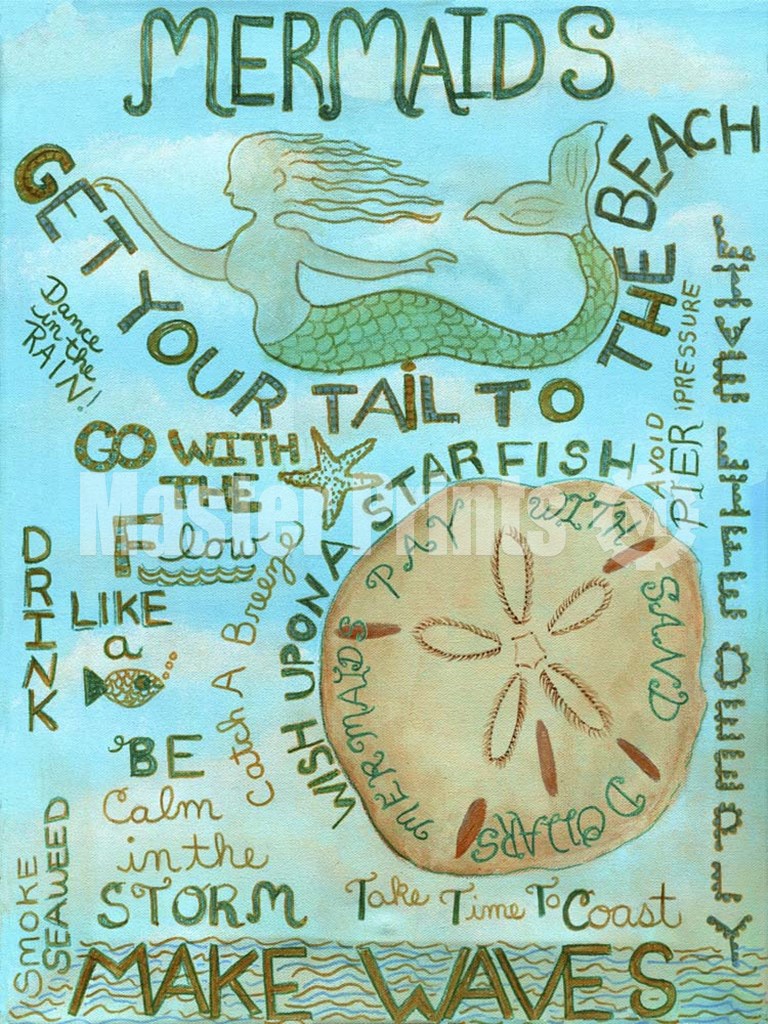 MERMAIDS
GET YOUR TAIL TO THE BEACH
Dance
in the
RAIN!
AVOID
PIER PRESSURE
GO WITH
THE
Flow
WISH UPON A STARFISH
Catch A Breeze
DRINK
LIKE
a
MERMAIDS PAY WITH SAND DOllARS
BE
Calm
in the
STORM
SMOKE
SEAWEED
Take Time To Coast
MAKE WAVES
Master Prints